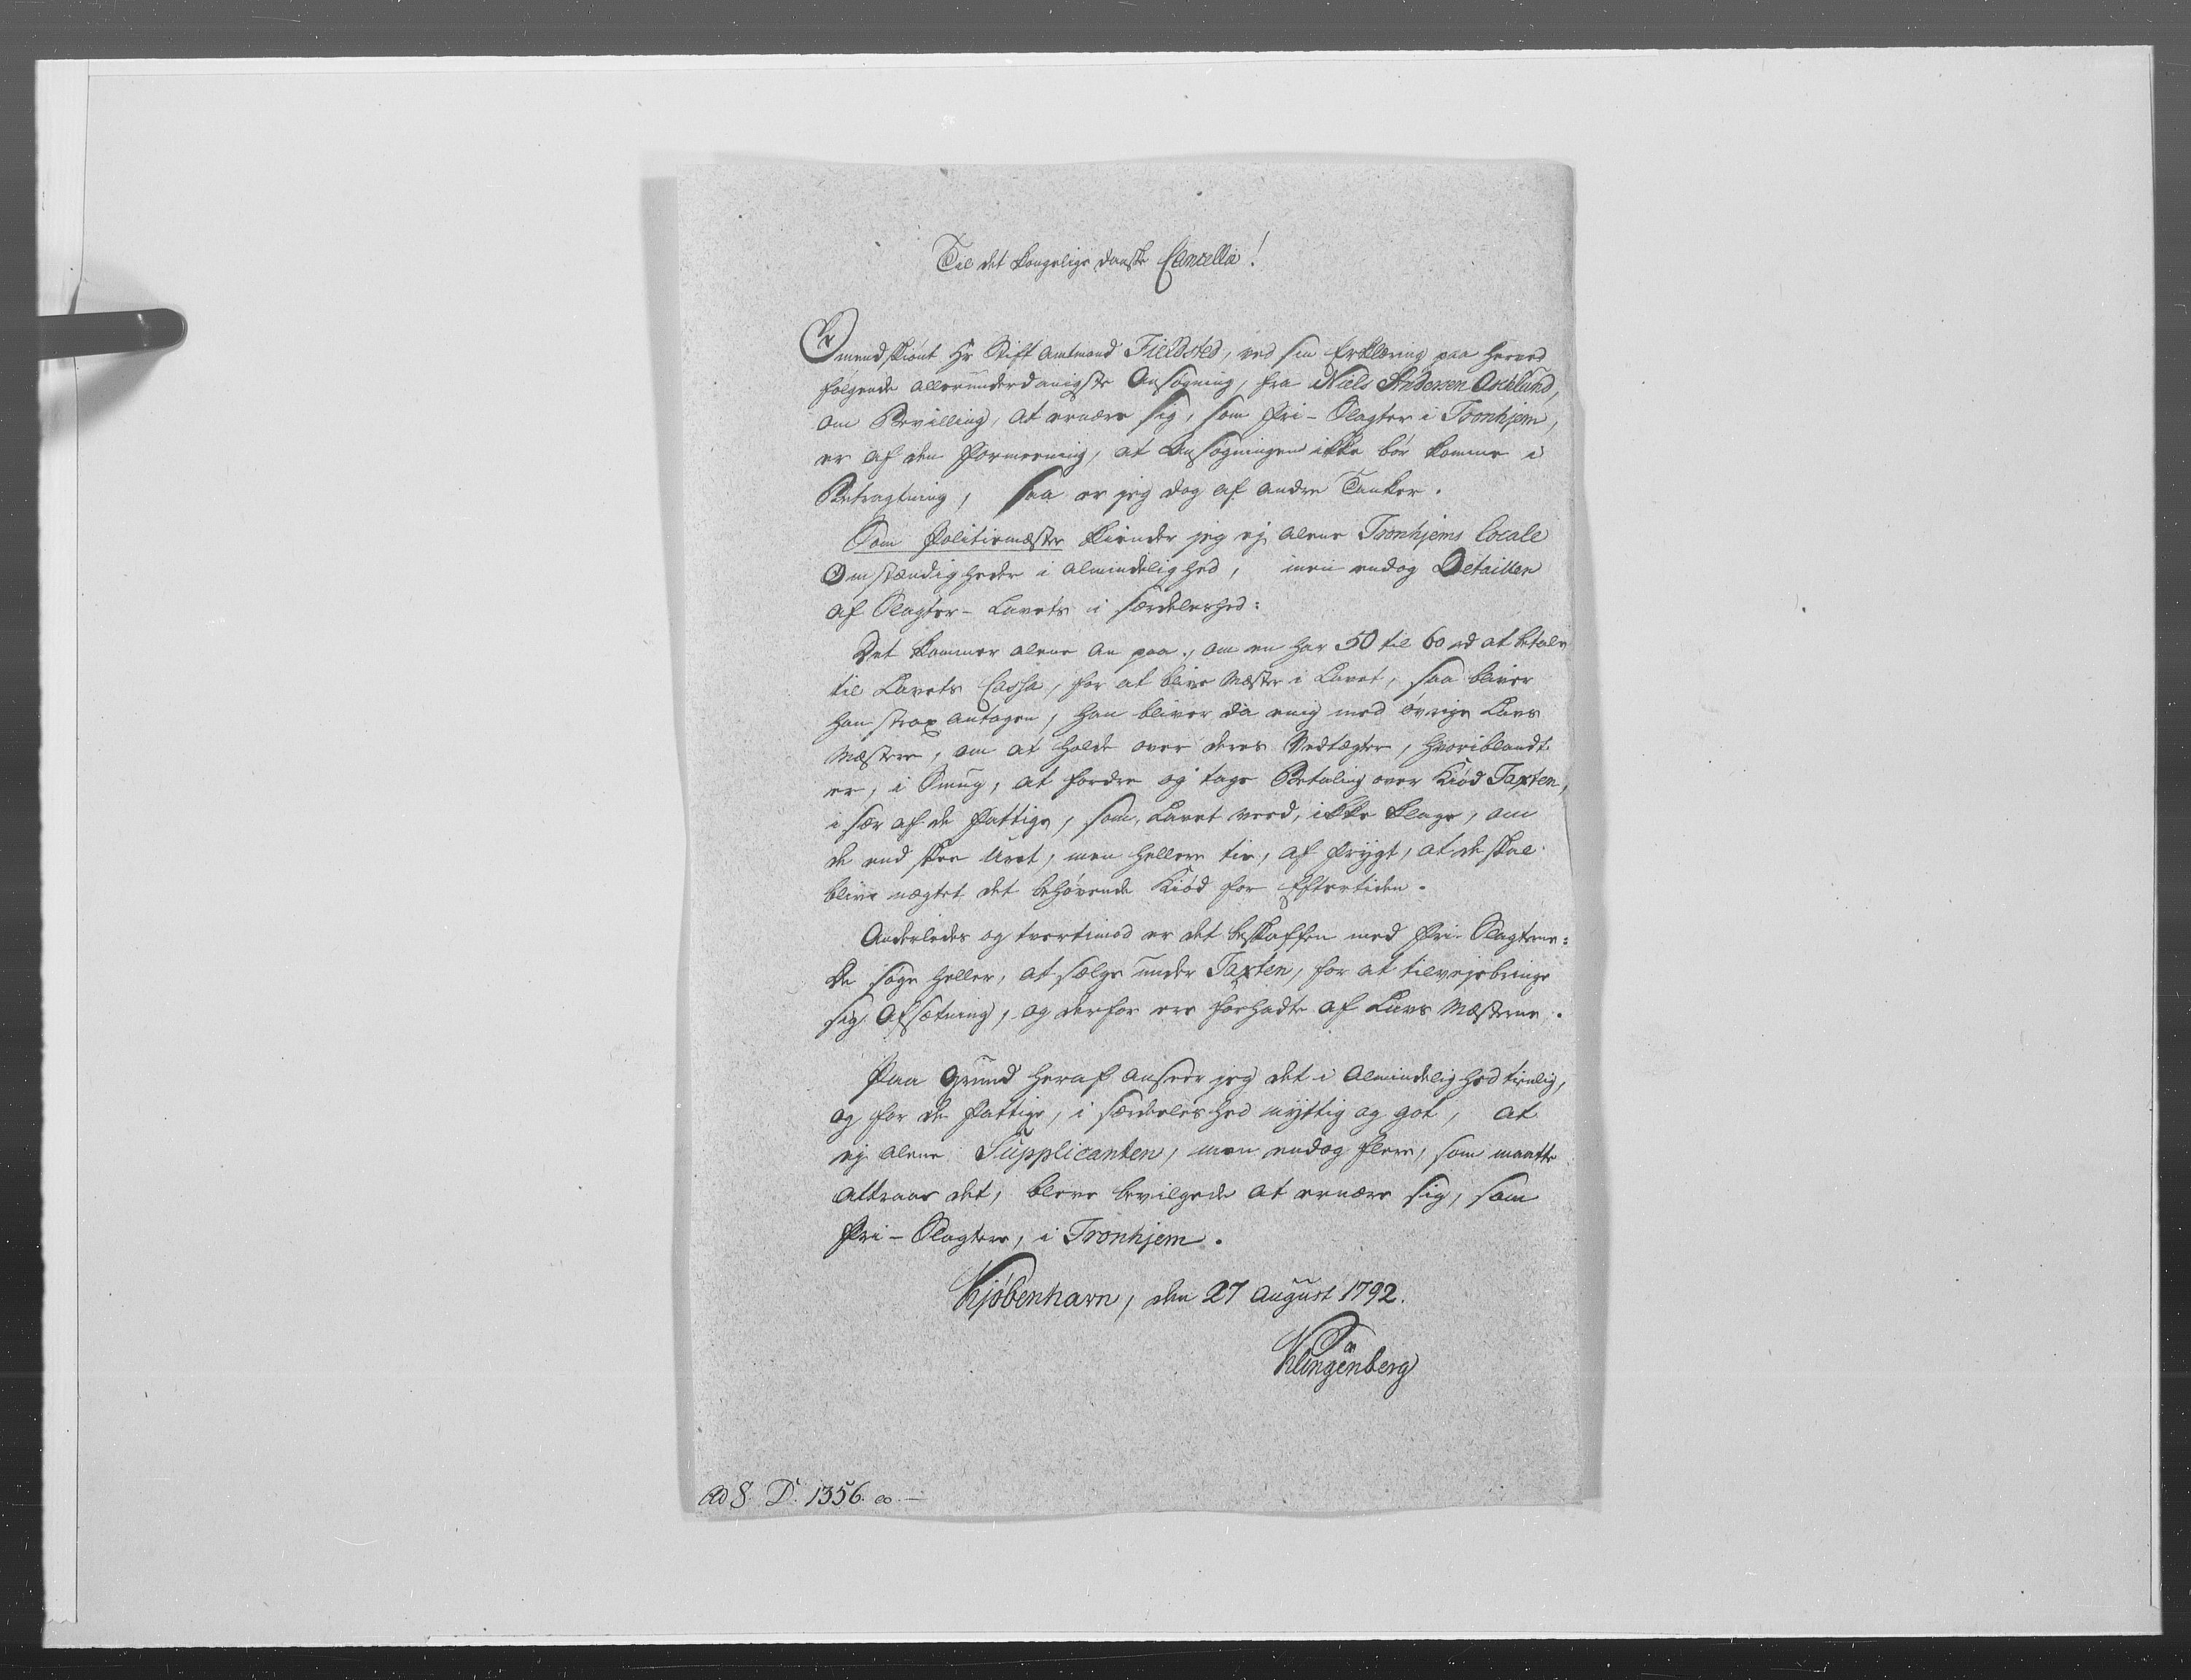 Til det kongelige danske Cancellie!
Omendskiønt Hr Stift Amtmand Fieldsted, ved sin Erklæring paa herved
følgende allerunderdanigste Ansøgning, fra Niels Andersen Asklund,
om Bevilling, at ernære sig, som Fri-Slagter i Tronhjem,
er af den Formeening, at Ansøgningen ikke bør komme i
Betragtning, saa er jeg dog af andre Tanker.
Som Politiemæster kiender jeg ej alene Tronhjems locale
Omstændigheder i Almindelighed, men endog Detaillen
af Slagter-Lavets i særdeleshed:
Det kommer alene an paa, om en har 50 til 60 rd at betale
til Lavets Cassa, for at blive Mæster i Lavet, saa bliver
han strax antagen, han bliver da enig med øvrige Lavs
Mæstere, om at holde over deres Vedtægter, hvoriblandt
er, i Smug, at fordre og tage Betaling over Kiød Taxten,
i sær af de Fattige, som, Lavet veed, ikke klage, om
de end skee Uret, men hellere tie, af Frygt, at de skal
blive nægtet det behøvende Kiød for Eftertiden.
Anderledes og tvertimod er det beskaffen med Fri-Slagterne:
De søge heller, at sælge under Taxten, for at tilvejebringe
sig Afsætning, og derfor ere forhadte af Lavs Mæsterne.
Paa Grund heraf anseer jeg det i Almindelighed tienlig,
og for de Fattige, i særdeleshed nyttig og got, at
ej alene Supplicanten, men endog flere, som maatte
attraae det, bleve bevilgede at ernære sig, som
Fri-Slagtere, i Tronhjem.
Kjøbenhavn, den 27 August 1792.
Klingenberg
Ad S. D. 1356.